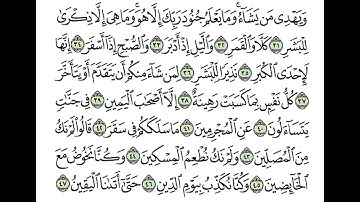 وَيَهْدِى مَن يَشَآءُ ۚ وَمَا يَعْلَمُ جُنُودَ رَبِّكَ إِلَّا هُوَ ۚ وَمَا هِىَ إِلَّا ذِكْرَىٰ
لِلْبَشَرِ ٣١ كَلَّا وَٱلْقَمَرِ ٣٢ وَٱلَّيْلِ إِذْ أَدْبَرَ ٣٣ وَٱلصُّبْحِ إِذَآ أَسْفَرَ ٣٤ إِنَّهَا
لَإِحْدَى ٱلْكُبَرِ ٣٥ نَذِيرًا لِّلْبَشَرِ ٣٦ لِمَن شَآءَ مِنكُمْ أَن يَتَقَدَّمَ أَوْ يَتَأَخَّرَ
٣٧ كُلُّ نَفْسٍۭ بِمَا كَسَبَتْ رَهِينَةٌ ٣٨ إِلَّآ أَصْحَٰبَ ٱلْيَمِينِ ٣٩ فِى جَنَّٰتٍ
يَتَسَآءَلُونَ ٤٠ عَنِ ٱلْمُجْرِمِينَ ٤١ مَا سَلَكَكُمْ فِى سَقَرَ ٤٢ قَالُوا۟ لَمْ نَكُ
مِنَ ٱلْمُصَلِّينَ ٤٣ وَلَمْ نَكُ نُطْعِمُ ٱلْمِسْكِينَ ٤٤ وَكُنَّا نَخُوضُ مَعَ
ٱلْخَآئِضِينَ ٤٥ وَكُنَّا نُكَذِّبُ بِيَوْمِ ٱلدِّينِ ٤٦ حَتَّىٰٓ أَتَىٰنَا ٱلْيَقِينُ ٤٧